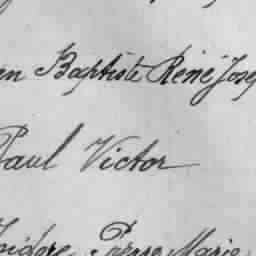 en Baptiste René Jose
Paul Victor
Isidore Pierre Marie